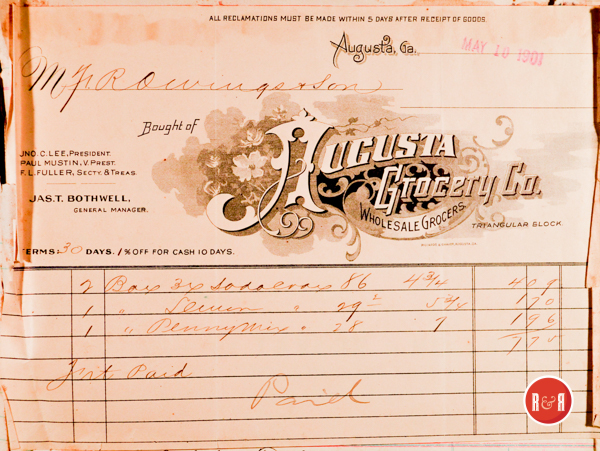 ALL RECLAMATIONS MUST BE MADE WITHIN 5 DAYS AFTER RECEIPT OF GOODS.
Augusta, Ga. MAY 10 1901
M J R Owings & Son
Bought of
AUGUSTA
Grocery Co.
WHOLESALE GROCERS.
TRIANGULAR BLOCK
JNO. C. LEE, PRESIDENT.
PAUL MUSTIN, V. PREST.
F. L. FULLER, SECTY. & TREAS.
JAS. T. BOTHWELL,
GENERAL MANAGER.
TERMS: 30 DAYS. 1% OFF FOR CASH 10 DAYS.
2 Box 3x Soda 86 4 3/4 409
1 " Lemon " 29 5 3/4 170
1 " Penny Mix " 28 7 196
775
Frt Paid
Paid
R&R